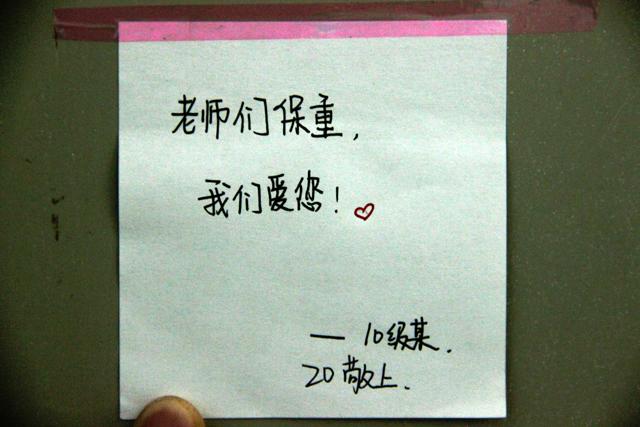 老师们保重，
我们爱您！
— 10级某.
20敬上.